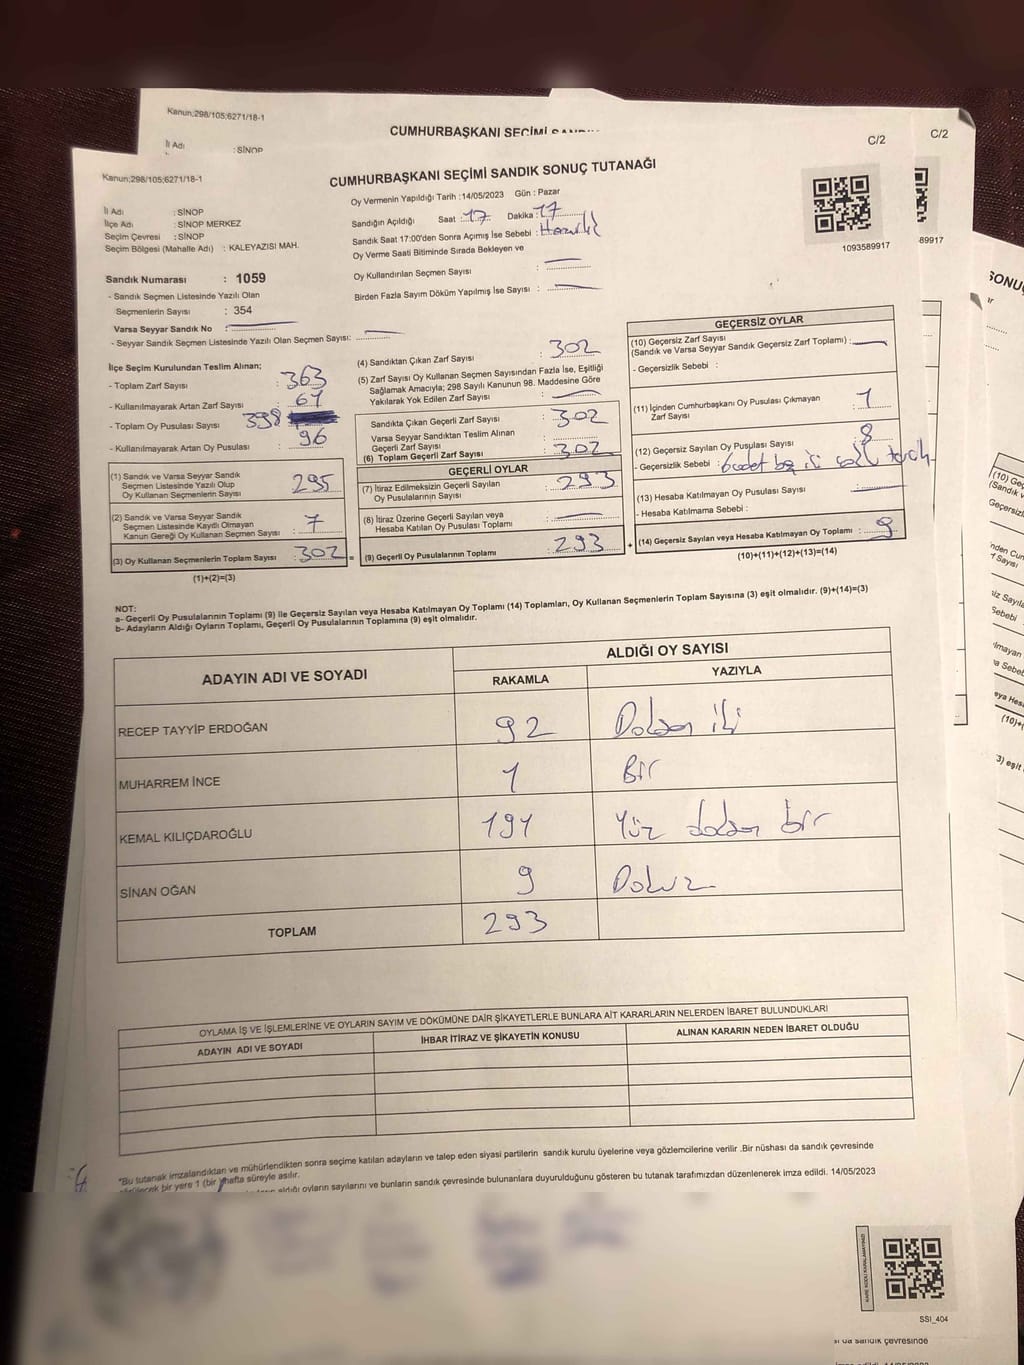 Kanun;298/105;6271/18-1
CUMHURBAŞKANI SEÇİMİ
C/2
İl Adı : SİNOP
C/2
Kanun;298/105;6271/18-1
CUMHURBAŞKANI SEÇİMİ SANDIK SONUÇ TUTANAĞI
Oy Vermenin Yapıldığı Tarih :14/05/2023 Gün : Pazar
İl Adı : SİNOP
İlçe Adı : SİNOP MERKEZ
Seçim Çevresi : SİNOP
Seçim Bölgesi (Mahalle Adı) : KALEYAZISI MAH.
Sandığın Açıldığı Saat : 17 Dakika : 17
Sandık Saat 17:00'den Sonra Açımış İse Sebebi : Hazırlık
Oy Verme Saati Bitiminde Sırada Bekleyen ve
Oy Kullandırılan Seçmen Sayısı :
Birden Fazla Sayım Döküm Yapılmış İse Sayısı :
1093589917
89917
Sandık Numarası : 1059
- Sandık Seçmen Listesinde Yazılı Olan
Seçmenlerin Sayısı : 354
Varsa Seyyar Sandık No :
- Seyyar Sandık Seçmen Listesinde Yazılı Olan Seçmen Sayısı:
İlçe Seçim Kurulundan Teslim Alınan;
- Toplam Zarf Sayısı : 363
- Kullanılmayarak Artan Zarf Sayısı : 61
- Toplam Oy Pusulası Sayısı 398
- Kullanılmayarak Artan Oy Pusulası : 96
(1) Sandık ve Varsa Seyyar Sandık
Seçmen Listesinde Yazılı Olup
Oy Kullanan Seçmenlerin Sayısı : 295
(2) Sandık ve Varsa Seyyar Sandık
Seçmen Listesinde Kayıtlı Olmayan
Kanun Gereği Oy Kullanan Seçmen Sayısı : 7
(3) Oy Kullanan Seçmenlerin Toplam Sayısı : 302 =
(1)+(2)=(3)
(4) Sandıktan Çıkan Zarf Sayısı : 302
(5) Zarf Sayısı Oy Kullanan Seçmen Sayısından Fazla İse, Eşitliği
Sağlamak Amacıyla; 298 Sayılı Kanunun 98. Maddesine Göre
Yakılarak Yok Edilen Zarf Sayısı :
Sandıkta Çıkan Geçerli Zarf Sayısı : 302
Varsa Seyyar Sandıktan Teslim Alınan
Geçerli Zarf Sayısı :
(6) Toplam Geçerli Zarf Sayısı : 302
GEÇERLİ OYLAR
(7) İtiraz Edilmeksizin Geçerli Sayılan
Oy Pusulalarının Sayısı : 293
(8) İtiraz Üzerine Geçerli Sayılan veya
Hesaba Katılan Oy Pusulası Toplamı :
(9) Geçerli Oy Pusulalarının Toplamı : 293 +
GEÇERSİZ OYLAR
(10) Geçersiz Zarf Sayısı
(Sandık ve Varsa Seyyar Sandık Geçersiz Zarf Toplamı) :
- Geçersizlik Sebebi :
(11) İçinden Cumhurbaşkanı Oy Pusulası Çıkmayan
Zarf Sayısı : 1
(12) Geçersiz Sayılan Oy Pusulası Sayısı : 8
- Geçersizlik Sebebi :
(13) Hesaba Katılmayan Oy Pusulası Sayısı :
- Hesaba Katılmama Sebebi :
(14) Geçersiz Sayılan veya Hesaba Katılmayan Oy Toplamı : 9
(10)+(11)+(12)+(13)=(14)
NOT:
a- Geçerli Oy Pusulalarının Toplamı (9) ile Geçersiz Sayılan veya Hesaba Katılmayan Oy Toplamı (14) Toplamları, Oy Kullanan Seçmenlerin Toplam Sayısına (3) eşit olmalıdır. (9)+(14)=(3)
b- Adayların Aldığı Oyların Toplamı, Geçerli Oy Pusulalarının Toplamına (9) eşit olmalıdır.
ADAYIN ADI VE SOYADI
ALDIĞI OY SAYISI
RAKAMLA YAZIYLA
RECEP TAYYİP ERDOĞAN 92 Doksan iki
MUHARREM İNCE 1 Bir
KEMAL KILIÇDAROĞLU 191 Yüz doksan bir
SİNAN OĞAN 9 Dokuz
TOPLAM 293
OYLAMA İŞ VE İŞLEMLERİNE VE OYLARIN SAYIM VE DÖKÜMÜNE DAİR ŞİKAYETLERLE BUNLARA AİT KARARLARIN NELERDEN İBARET BULUNDUKLARI
ADAYIN ADI VE SOYADI İHBAR İTİRAZ VE ŞİKAYETİN KONUSU ALINAN KARARIN NEDEN İBARET OLDUĞU
*Bu tutanak imzalandıktan ve mühürlendikten sonra seçime katılan adayların ve talep eden siyasi partilerin sandık kurulu üyelerine veya gözlemcilerine verilir .Bir nüshası da sandık çevresinde
bir yere 1 (bir) hafta süreyle asılır.
aldığı oyların sayılarını ve bunların sandık çevresinde bulunanlara duyurulduğunu gösteren bu tutanak tarafımızdan düzenlenerek imza edildi. 14/05/2023
SSI_404
sandık çevresinde